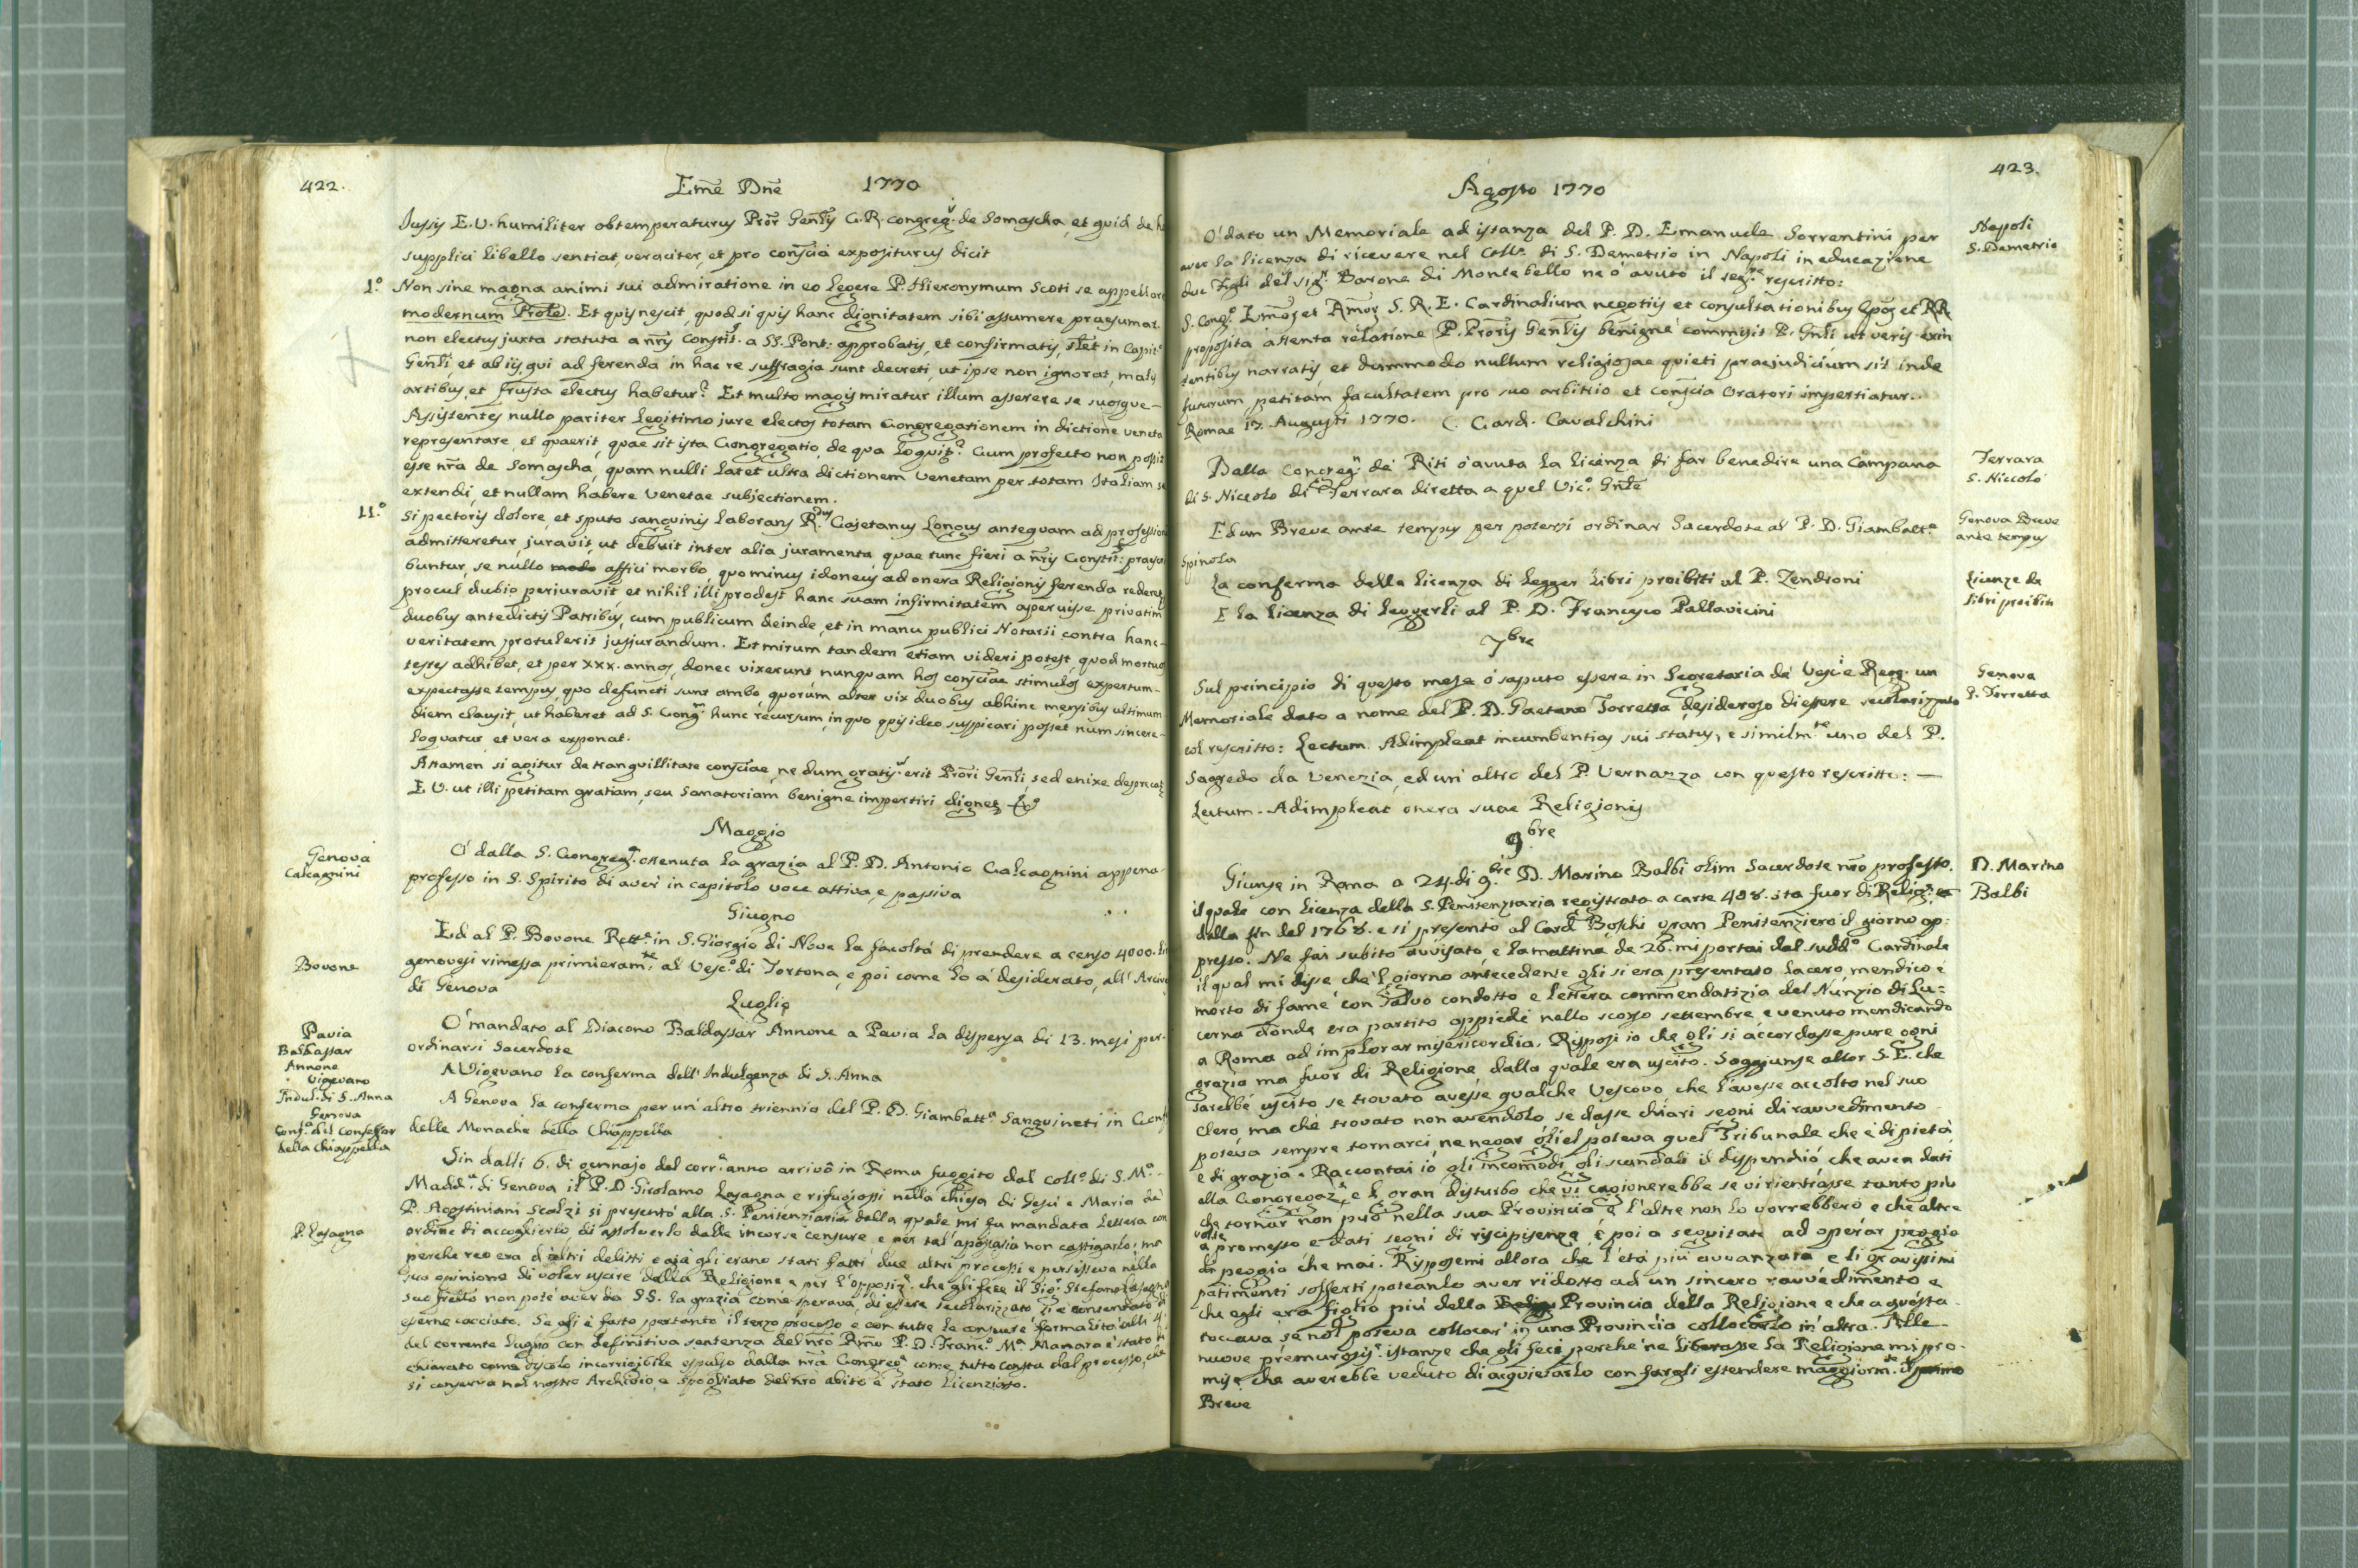 422.
Eme Dne 1770
Jussis E. V. humiliter obtemperaturus Pror Genlis C. R. Congreg. de Somascha, et quid de
supplici libello sentiat, veraciter, et pro conscia expositurus dicit
1.° Non sine magna animi sui admiratione in eo legere P. Hieronymum Scoti se appellare
modernum Prole. Et quis nescit, quod si quis hanc dignitatem sibi assumere praesumat
non electus juxta statuta a nris Constit. a SS. Pont: approbatis, et confirmatis, in Capit.
Genli, et ab iis, qui ad ferenda in hac re suffragia sunt decreti, ut ipse non ignorat, malis
artibus, et frustra electus habetur? Et multo magis miratur illum asserere se suosque
Assistentes nullo pariter legitimo jure electos totam Congregationem in dictione veneta
representare, et quaerit, quae sit ista Congregatio, de qua loquit? Cum profecto non possit
esse nra de Somascha, quam nulli latet ultra dictionem Venetam per totam Italiam se
extendi, et nullam habere Venetae subjectionem.
11.° Si pectoris dolore, et sputo sanguinis laborans R.dus Cajetanus Longus antequam ad professionem
admitteretur, juravit, ut debuit inter alia juramenta, quae tunc fieri a nris Constit: praescri
buntur, se nullo modo affici morbo, quo minus idoneus ad onera Religionis ferenda redderet,
procul dubio perjuravit et nihil illi prodest hanc suam infirmitatem aperuisse privatim
duobus antedictis Patribus, cum publicum deinde, et in manu publici Notarii contra hanc
veritatem protulerit jusjurandum. Et mirum tandem etiam videri potest, quod mortuos
testes adhibet, et per xxx. annos, donec vixerunt nunquam hos consciae stimulos expertum
expectasse tempus, quo defuncti sunt ambo, quorum alter vix duobus abhinc mensibus ultimum
diem clausit, ut haberet ad S. Cong.m hunc recursum, in quo quis ideo suspicari posset num sincere
loquatur, et vera exponat.
Attamen si agitur de tranquillitate consciae, nedum gratis erit Prori Genli, sed enixe deprecat
E V. ut illi petitam gratiam, seu Sanatoriam benigne impertiri dignet
Maggio
Genova
Calcagnini
O' dalla S. Congreg. ottenuta la grazia al P. D. Antonio Calcagnini appena
professo in S. Spirito di aver in capitolo voce attiva, e passiva
Giugno
Bovone
Ed al P. Bovone Rett.e in S. Giorgio di Nove la facoltà di prendere a censo 4000. lire
genovesi rimessa primieram.te al Vesc.° di Tortona, e poi come lo à desiderato, all' Arciv
di Genova
Luglio
Pavia
Baldassar
Annone
O' mandato al Diacono Baldassar Annone a Pavia la dispensa di 13. mesi per
ordinarsi Sacerdote
Vigevano
Indul. di S. Anna
A Vigevano la conferma dell' Indulgenza di S. Anna
Genova
Conf.a del Confessor
della Chiappella
A Genova la conferma per un' altro triennio del P. D. Giambatt.a Sanguineti in Conf
delle Monache della Chiappella
P. Lasagna
Sin dalli 6. di gennajo del corr.e anno arrivò in Roma fuggito dal Coll.° di S. M.a
Madd.a di Genova il P. D. Girolamo Lasagna e rifugiossi nella chiesa di Gesù e Maria de'
P. Agostiniani Scalzi si presentò alla S. Penitenziaria dalla quale mi fu mandata lettera con
ordine di accoglierlo, di assolverlo dalle incorse censure e per tal apostasia non castigarlo; ma
perche reo era d' altri delitti e già gli erano stati fatti due altri processi e persisteva nella
sua opinione di voler uscire dalla Religione e per l' opposiz.e che gli fece il Sig.r Stefano Lasagna
suo fratello non potè aver da SS. la grazia come sperava, di essere secolarizzato
esserne cacciato. Se gli è fatto pertanto il terzo processo e con tutte le consuete formalità alli 4.
del corrente luglio con definitiva sentenza del nro Rmo P. D. Franc.° M.a Manara è stato di
chiarato come discolo incorrigibile espulso dalla nra Congreg.e come tutto consta dal processo, che
si conserva nel nostro Archivio, e spogliato del nro abito è stato licenziato.
423.
Agosto 1770
Napoli
S. Demetrio
O' dato un Memoriale ad istanza del P. D. Emanuele Sorrentini per
aver la licenza di ricevere nel Coll.° di S. Demetrio in Napoli in educazione
due Figli del Sig.r Barone di Montebello ne ò avuto il seg.te rescritto:
S. Cong.° Emos et Rmor S. R. E. Cardinalium negotiis et consultationibus Epos et RR
proposita attenta relatione P. Proris Genlis benigne commisit P. Gnli ut veris exis
tentibus narratis, et dummodo nullum religiosae quieti praejudicium sit inde
futurum, petitam facultatem pro suo arbitrio et conscia Oratori impertiatur.
Romae 17. Augusti 1770. C. Card. Cavalchini
Ferrara
S. Niccolò
Dalla Congreg.n de' Riti ò avuta la licenza di far benedire una Campana
di S. Niccolo di Ferrara diretta a quel Vic.° Gnle
Genova Breve
ante tempus
Ed un Breve ante tempus per potersi ordinar Sacerdote al P. D. Giambatt.a
Spinola
Licenze de
libri proibiti
La conferma della licenza di legger libri proibiti al P. Zendroni
E la licenza di leggerli al P. D. Francesco Pallavicini
7bre
Genova
P. Torretta
Sul principio di questo mese ò saputo essere in Segretaria de' Vesc.i e Reg. un
Memoriale dato a nome del P. D. Gaetano Torretta desideroso di essere secolarizzato
col rescritto: Lectum. Adimpleat incumbentias sui status, e similm.te uno del P.
Sagredo da Venezia, ed un' altro del P. Vernazza con questo rescritto: —
Lectum. Adimpleat onera suae Religionis
9bre
D. Marino
Balbi
Giunse in Roma a 24. di 9.bre D. Marino Balbi olim Sacerdote nro professo,
il quale con licenza della S. Penitenziaria registrata a carte 408. sta fuor di Relig.e
dalla fin del 1768. e si presentò al Card.l Boschi gran Penitenziero il giorno ap:
presso. Ne fui subito avvisato, e la mattina de 26. mi portai dal sudd.° Cardinale
il qual mi disse che 'l giorno antecedente gli si era presentato lacero, mendico e
morto di fame con Salvo condotto e lettera commendatizia del Nunzio di Lu=
cerna donde era partito appiedi nello scorso settembre e venuto mendicando
a Roma ad implorar misericordia. Risposi io che gli si accordasse pure ogni
grazia ma fuor di Religione dalla quale era uscito. Soggiunse allor S. E. che
sarebbe uscito se trovato avesse qualche Vescovo che l' avesse accolto nel suo
Clero, ma che trovato non avendolo, se dasse chiari segni di ravvedimento
poteva sempre tornarci, ne negar gliel poteva quel Tribunale che è di pietà
e di grazia. Raccontai io gli incomodi, gli scandali il dispendio, che avea dati
alla Congregaz.e, e 'l gran disturbo che vi cagionerebbe se vi rientrasse tanto più
che tornar non può nella sua Provincia e l' altre non lo vorrebbero e che altre
volte
à promesso e dati segni di riscipisenza, e poi a seguitato ad operar peggio
di peggio che mai. Risposemi allora che l' età più avvanzata e li gravissimi
patimenti sofferti poteanlo aver ridotto ad un sincero ravvedimento e
che egli era figlio più della Provincia della Religione e che a questa
toccava se nol poteva collocar in una Provincia collocarlo in altra. Alle
nuove premurosis.e istanze che gli feci perche ne liberasse la Religione mi pro
mise che averebbe veduto di acquietarlo con fargli estendere maggiorm.te il primo
Breve